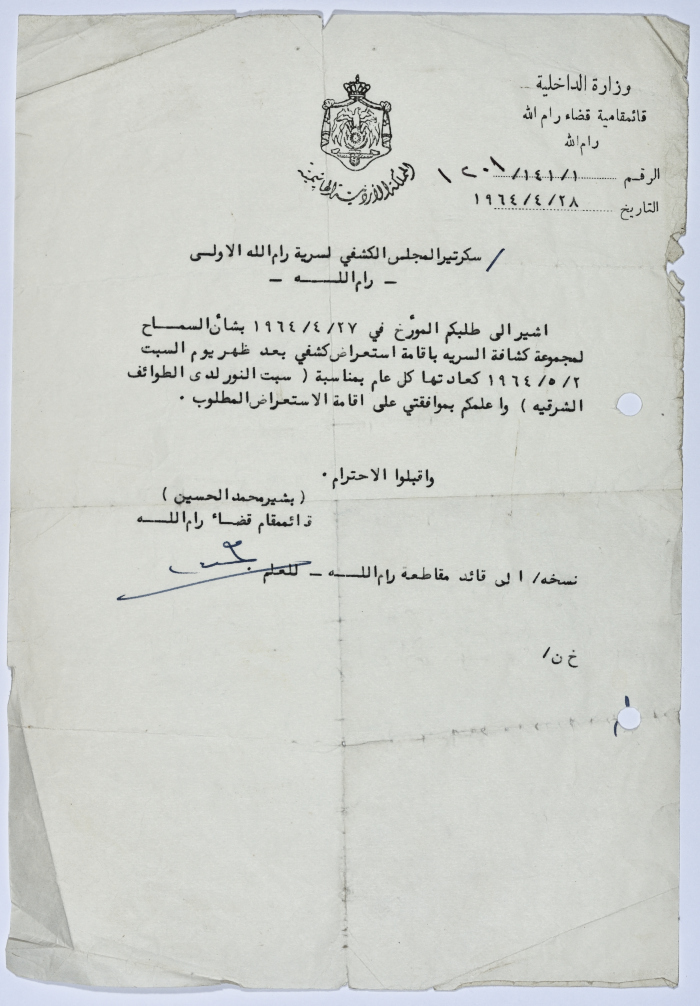 وزارة الداخلية
قائمقامية قضاء رام الله
رام الله
المملكة الأردنية الهاشمية
الرقم ١/١٤١/ ١٢٠١
التاريخ ١٩٦٤/٤/٢٨
سكرتير المجلس الكشفي لسرية رام الله الاولى
ـ رام اللـــه ـ
اشير الى طلبكم المورّخ في ١٩٦٤/٤/٢٧ بشأن السمـــاح
لمجموعة كشافة السريه باقامة استعراض كشفي بعد ظهر يوم السبت
١٩٦٤/٥/٢ كعادتها كل عام بمناسبة ( سبت النور لدى الطوائف
الشرقيه ) واعلمكم بموافقتي على اقامة الاستعراض المطلوب ٠
واقبلوا الاحترام ٠
( بشير محمد الحسين )
قائممقام قضــاء رام اللـــه
نسخه/ الى قائد مقاطعة رام اللـــه ـ للعلم
خ ن/